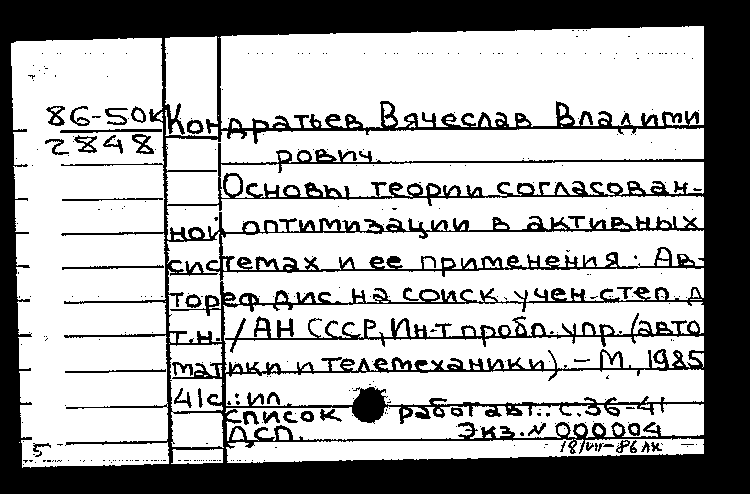 86-50к Кондратьев, Вячеслав Владими
2848
рович.
Основы теории согласован-
ной оптимизации в активных
системах и ее применения: Ав-
тореф. дис. на соиск. учен. степ. д.
т.н. / АН СССР, Ин-т пробл. упр. (авто
матики и телемеханики). - М., 1985
41с.: ил.
Список работ авт.: с. 36-41
ДСП. Экз. № 000004
5 18/VII-86